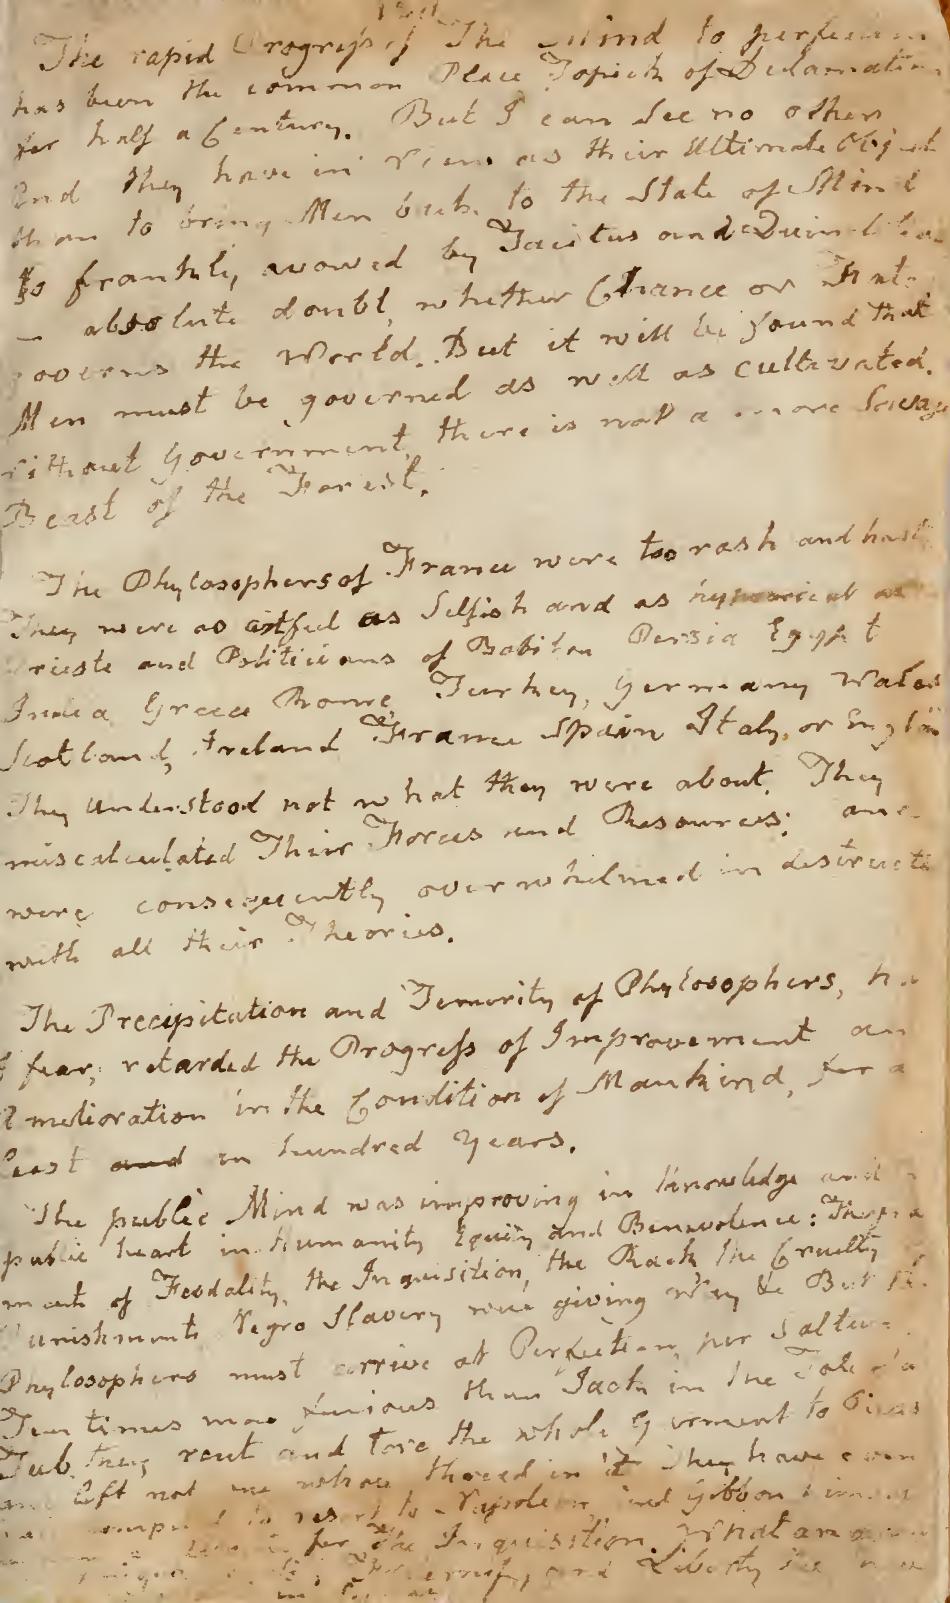 The rapid Progress of The Mind to perfection
has been the common Place Topick of Declamation
for half a Century. But I can See no other
End they have in View as their Ultimate Object
than to bring Men back to the State of Mind
so frankly, avowed by Tacitus and Quintilian
— absolute doubt, whether Chance or Fate
governs the World. But it will be found that
Men must be governed as well as cultivated.
Without Government, there is not a more Savage
Beast of the Forest.
The Phylosophers of France were too rash and hasty
They were as artful as Selfish and as hypocritical as
Priests and Politicians of Babilon Persia Egypt
India Greece Rome, Turkey, Germany Wales
Scotland, Ireland France Spain Italy, or England
They Understood not what they were about. They
miscalculated Their Forces and Resources: and
were consequently overwhelmed in destruction
with all their Theories.
The Precipitation and Temerity of Phylosophers, has
I fear, retarded the Progress of Improvement and
Amelioration in the Condition of Mankind, for at
least and an hundred Years.
The public Mind was improving in knowledge and
public heart in Humanity Equity and Benevolence:
of Feodality, the Inquisition, the Rack the Cruelty
Punishments Negro Slavery were giving Way &c But the
Phylosophers must arrive at Perfection, per Saltum.
Ten times more furious than Jack in the Tale of a
Tub. they rent and tore the whole Garment to Pieces
and left not one whole thread in it They have even
compelled to resort to Napoleon, and Gibbon
for the Inquisition. What an
and Liberty